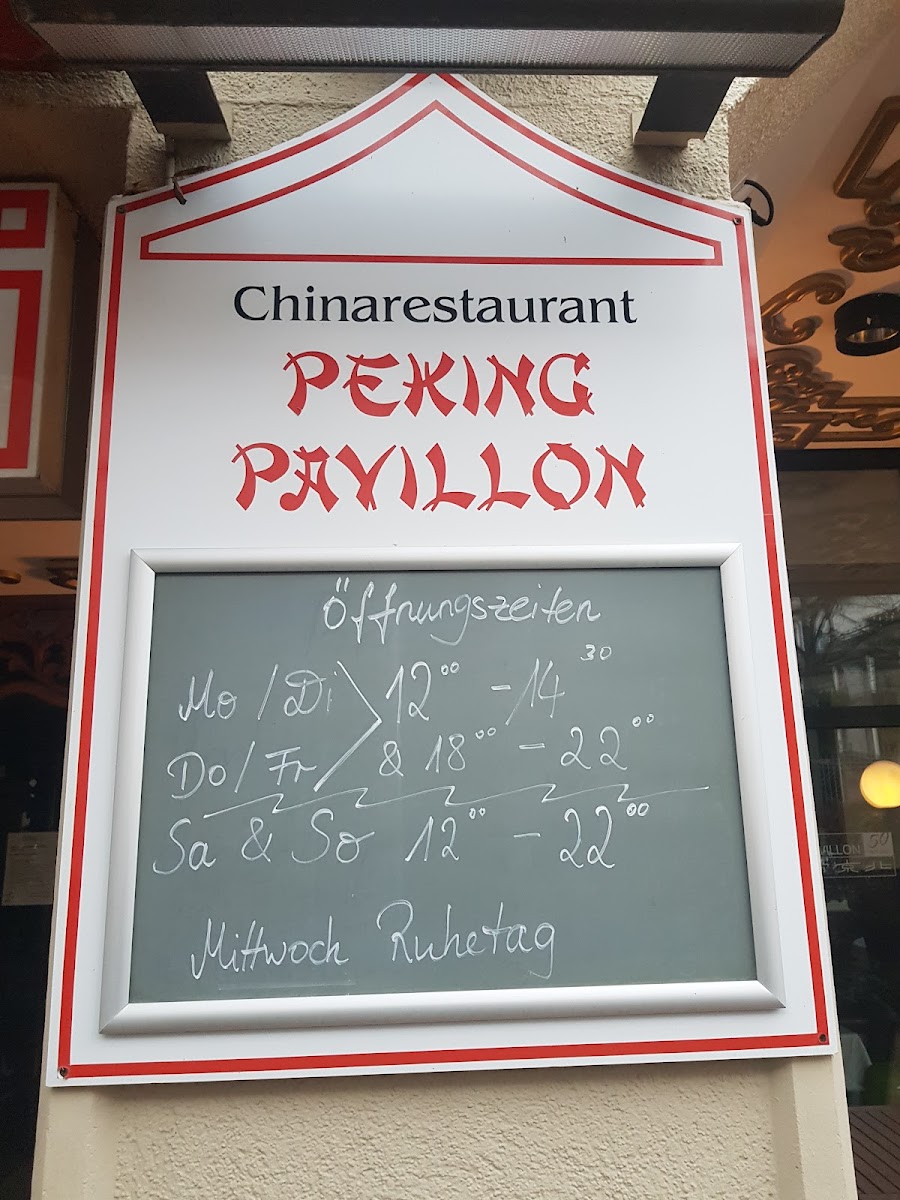 Chinarestaurant
PEKING
PAVILLON
Öffnungszeiten
Mo / Di 12⁰⁰ - 14³⁰
Do / Fr & 18⁰⁰ - 22⁰⁰
Sa & So 12⁰⁰ - 22⁰⁰
Mittwoch Ruhetag
50